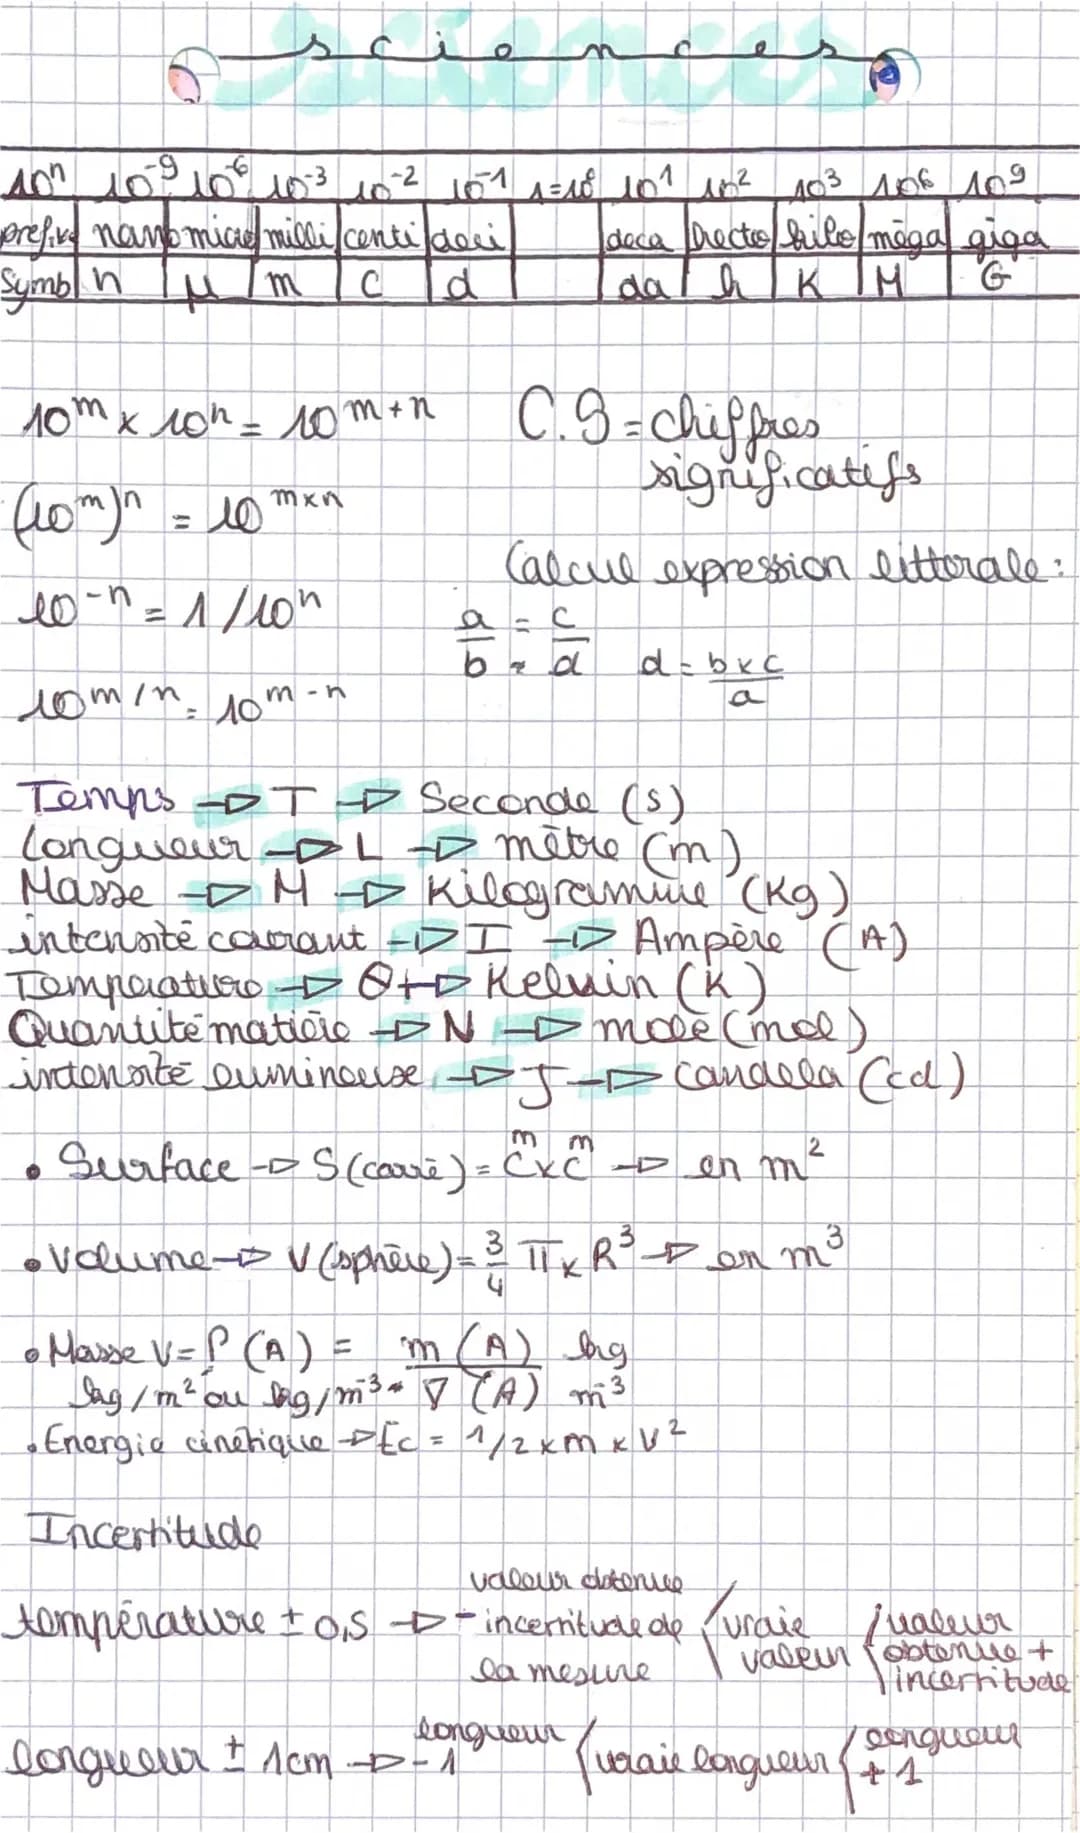 sciences
10ⁿ 10⁻⁹ 10⁻⁶ 10⁻³ 10⁻² 10⁻¹ 1=10⁰ 10¹ 10² 10³ 10⁶ 10⁹
prefixe nano micro milli centi deci deca hecto kilo méga giga
Symb n μ m c d da h K M G
10ᵐ x 10ⁿ = 10ᵐ⁺ⁿ
C.S = chiffres significatifs
(10ᵐ)ⁿ = 10ᵐˣⁿ
Calcul expression littorale :
10⁻ⁿ = 1/10ⁿ
a/b = c/d d = bxc/a
10ᵐ/ⁿ = 10ᵐ⁻ⁿ
Temps → T → Seconde (s)
Longueur → L → mètre (m)
Masse → M → Kilogramme (Kg)
intensité courant → I → Ampère (A)
Temperature → Θ → Kelvin (K)
Quantité matière → N → mole (mol)
intensité lumineuse → J → candela (cd)
• Surface → S (carré) = c x c → en m²
m m
• Volume → V (sphère) = 3/4 π x R³ → en m³
• Masse V = ρ (A) = m (A) kg
kg/m² ou kg/m⁻³ V (A) m⁻³
• Energie cinétique → Ec = 1/2 x m x v²
Incertitude
valeur obtenue
température ± 0,5 → - incertitude de ⟨ vraie ⟨ valeur
la mesure valeur obtenue +
incertitude
longueur ± 1cm → longueur - 1 ⟨ vraie longueur ⟨ longueur + 1